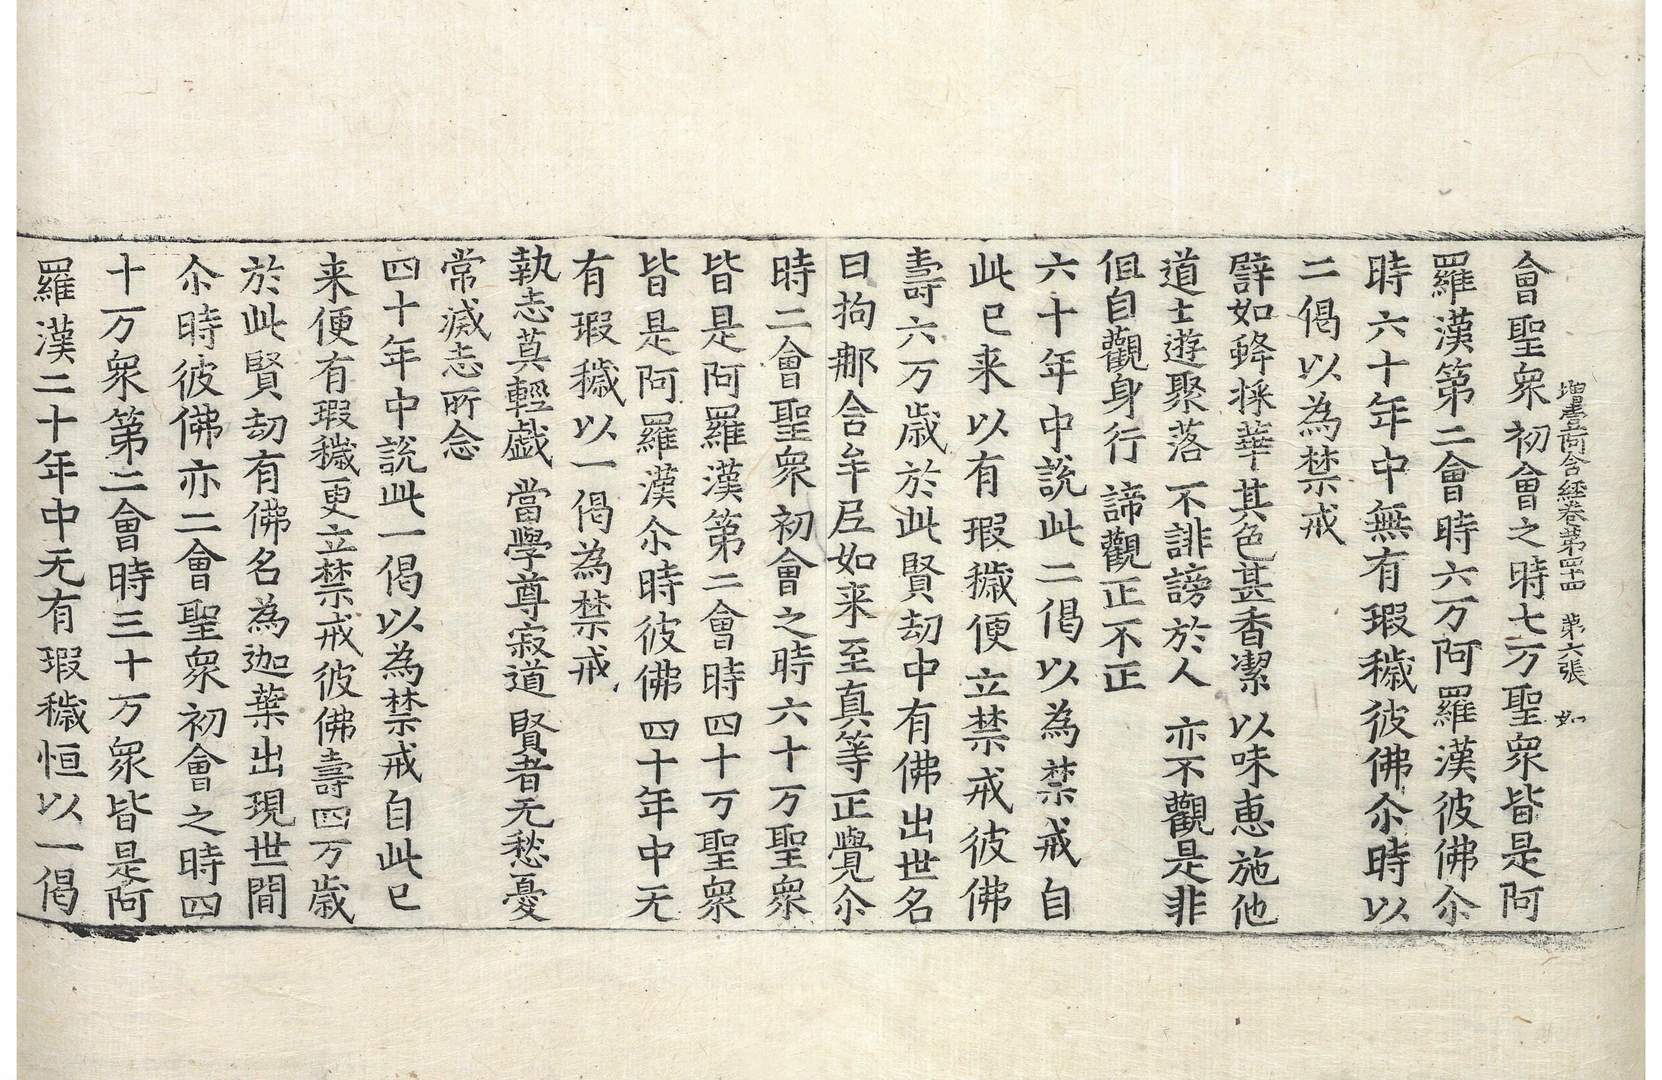 增壹阿含經卷第四十四　第六張　如
會聖眾初會之時七万聖眾皆是阿
羅漢第二會時六万阿羅漢彼佛尒
時六十年中無有瑕穢彼佛尒時以
二偈以為禁戒
譬如蜂採華其色甚香潔　以味惠施他
道士遊聚落　不誹謗於人　亦不觀是非
但自觀身行　諦觀正不正
六十年中說此二偈以為禁戒自
此已来以有瑕穢便立禁戒彼佛
壽六万歲於此賢劫中有佛出世名
曰拘那含牟尼如来至真等正覺尒
時二會聖眾初會之時六十万聖眾
皆是阿羅漢第二會時四十万聖眾
皆是阿羅漢尒時彼佛四十年中无
有瑕穢以一偈為禁戒
執志莫輕戲　當學尊寂道　賢者无愁憂
常滅志所念
四十年中說此一偈以為禁戒自此已
来便有瑕穢更立禁戒彼佛壽四万歲
於此賢劫有佛名為迦葉出現世間
尒時彼佛亦二會聖眾初會之時四
十万眾第二會時三十万眾皆是阿
羅漢二十年中无有瑕穢恒以一偈